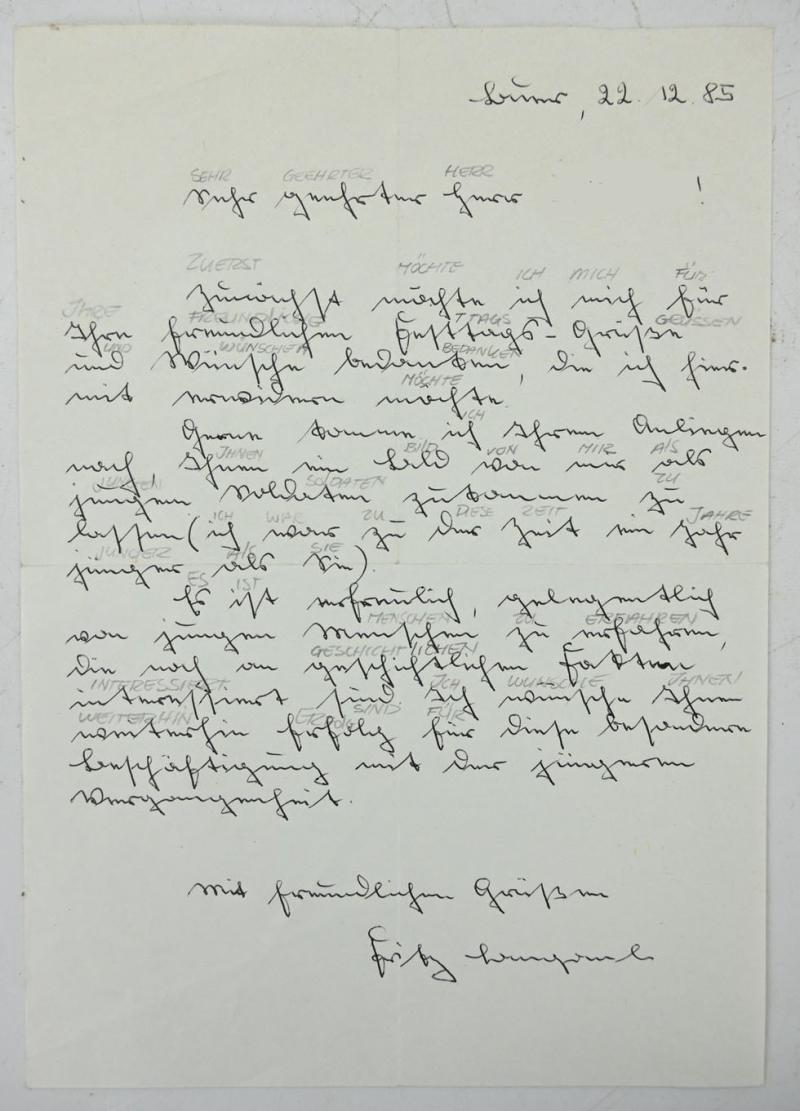 22. 12. 85
SEHR GEEHRTER HERR
Sehr geehrter Herr !
ZUERST MÖCHTE ICH MICH FÜR
Zunächst möchte ich mich für
IHRE GRÜSSEN
Ihre freundlichen Festtags-Grüße
UND WÜNSCHEN BEDANKEN
und Wünsche bedanken, die ich hier-
MÖCHTE
mit erwidern möchte.
ICH
Gerne komme ich Ihrem Anliegen
IHNEN BILD VON MIR ALS
nach, Ihnen ein Bild von mir als
JUNGEN SOLDATEN ZU
jungem Soldaten zukommen zu
ICH WAR ZU DIESE ZEIT JAHRE
lassen (ich war zu der Zeit ein Jahr
JUNGER ALS SIE
jünger als Sie).
ES IST
Es ist erfreulich, gelegentlich
MENSCHEN ZU ERFAHREN
von jungen Menschen zu erfahren,
GESCHICHTLICHEN
die noch an geschichtlichen Fakten
INTERESSIERT ICH WÜNSCHE IHNEN
interessiert sind. Ich wünsche Ihnen
WEITERHIN ERFOLG SIND FÜR
weiterhin Erfolg für diese besondere
Beschäftigung mit der jüngeren
Vergangenheit.
Mit freundlichen Grüßen
Fritz